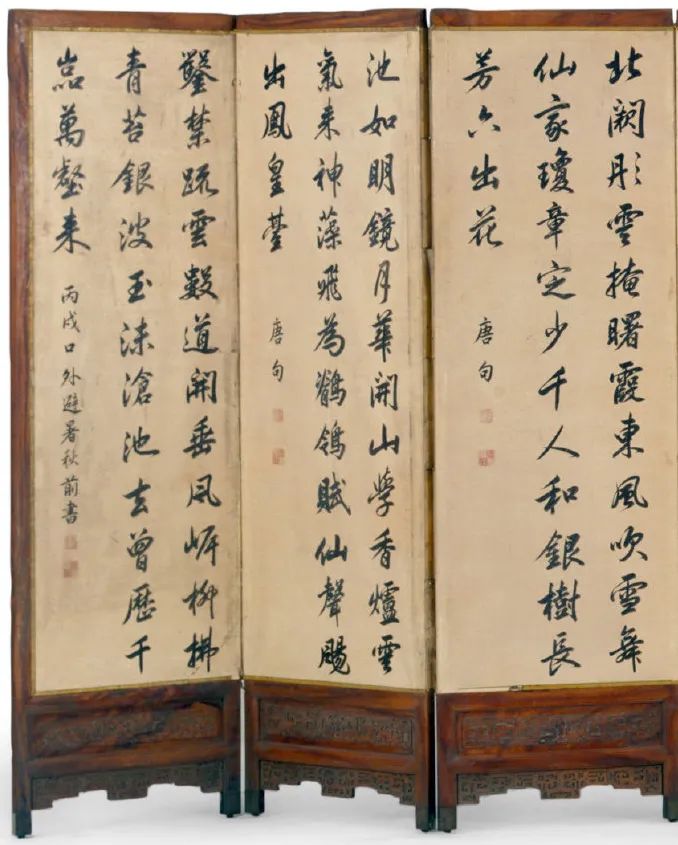 北闕彤雲掩曙霞東風吹雪舞
仙家瓊章定少千人和銀樹長
芳六出花
唐句
池如明鏡月華開山學香爐雲
氣来神藻飛為鶺鴒賦仙聲颺
出鳳皇臺
唐句
鑿禁疏雲數道開垂風岸柳拂
青苔銀波玉沫滄池去曾歷千
嵓萬壑来
丙戌口外避暑秋前書